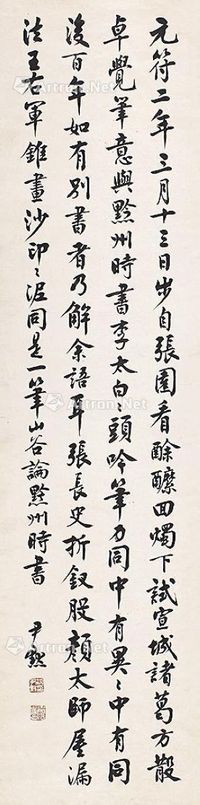 元符二年三月十三日步自張園看酴醿回燭下試宣城諸葛方散
卓覺筆意與黔州時書李太白白頭吟筆力同中有異〻中有同
後百年如有別書者乃解余語耳張長史折釵股顏太師屋漏
法王右軍錐畫沙印〻泥同是一筆山谷論黔州時書
尹默